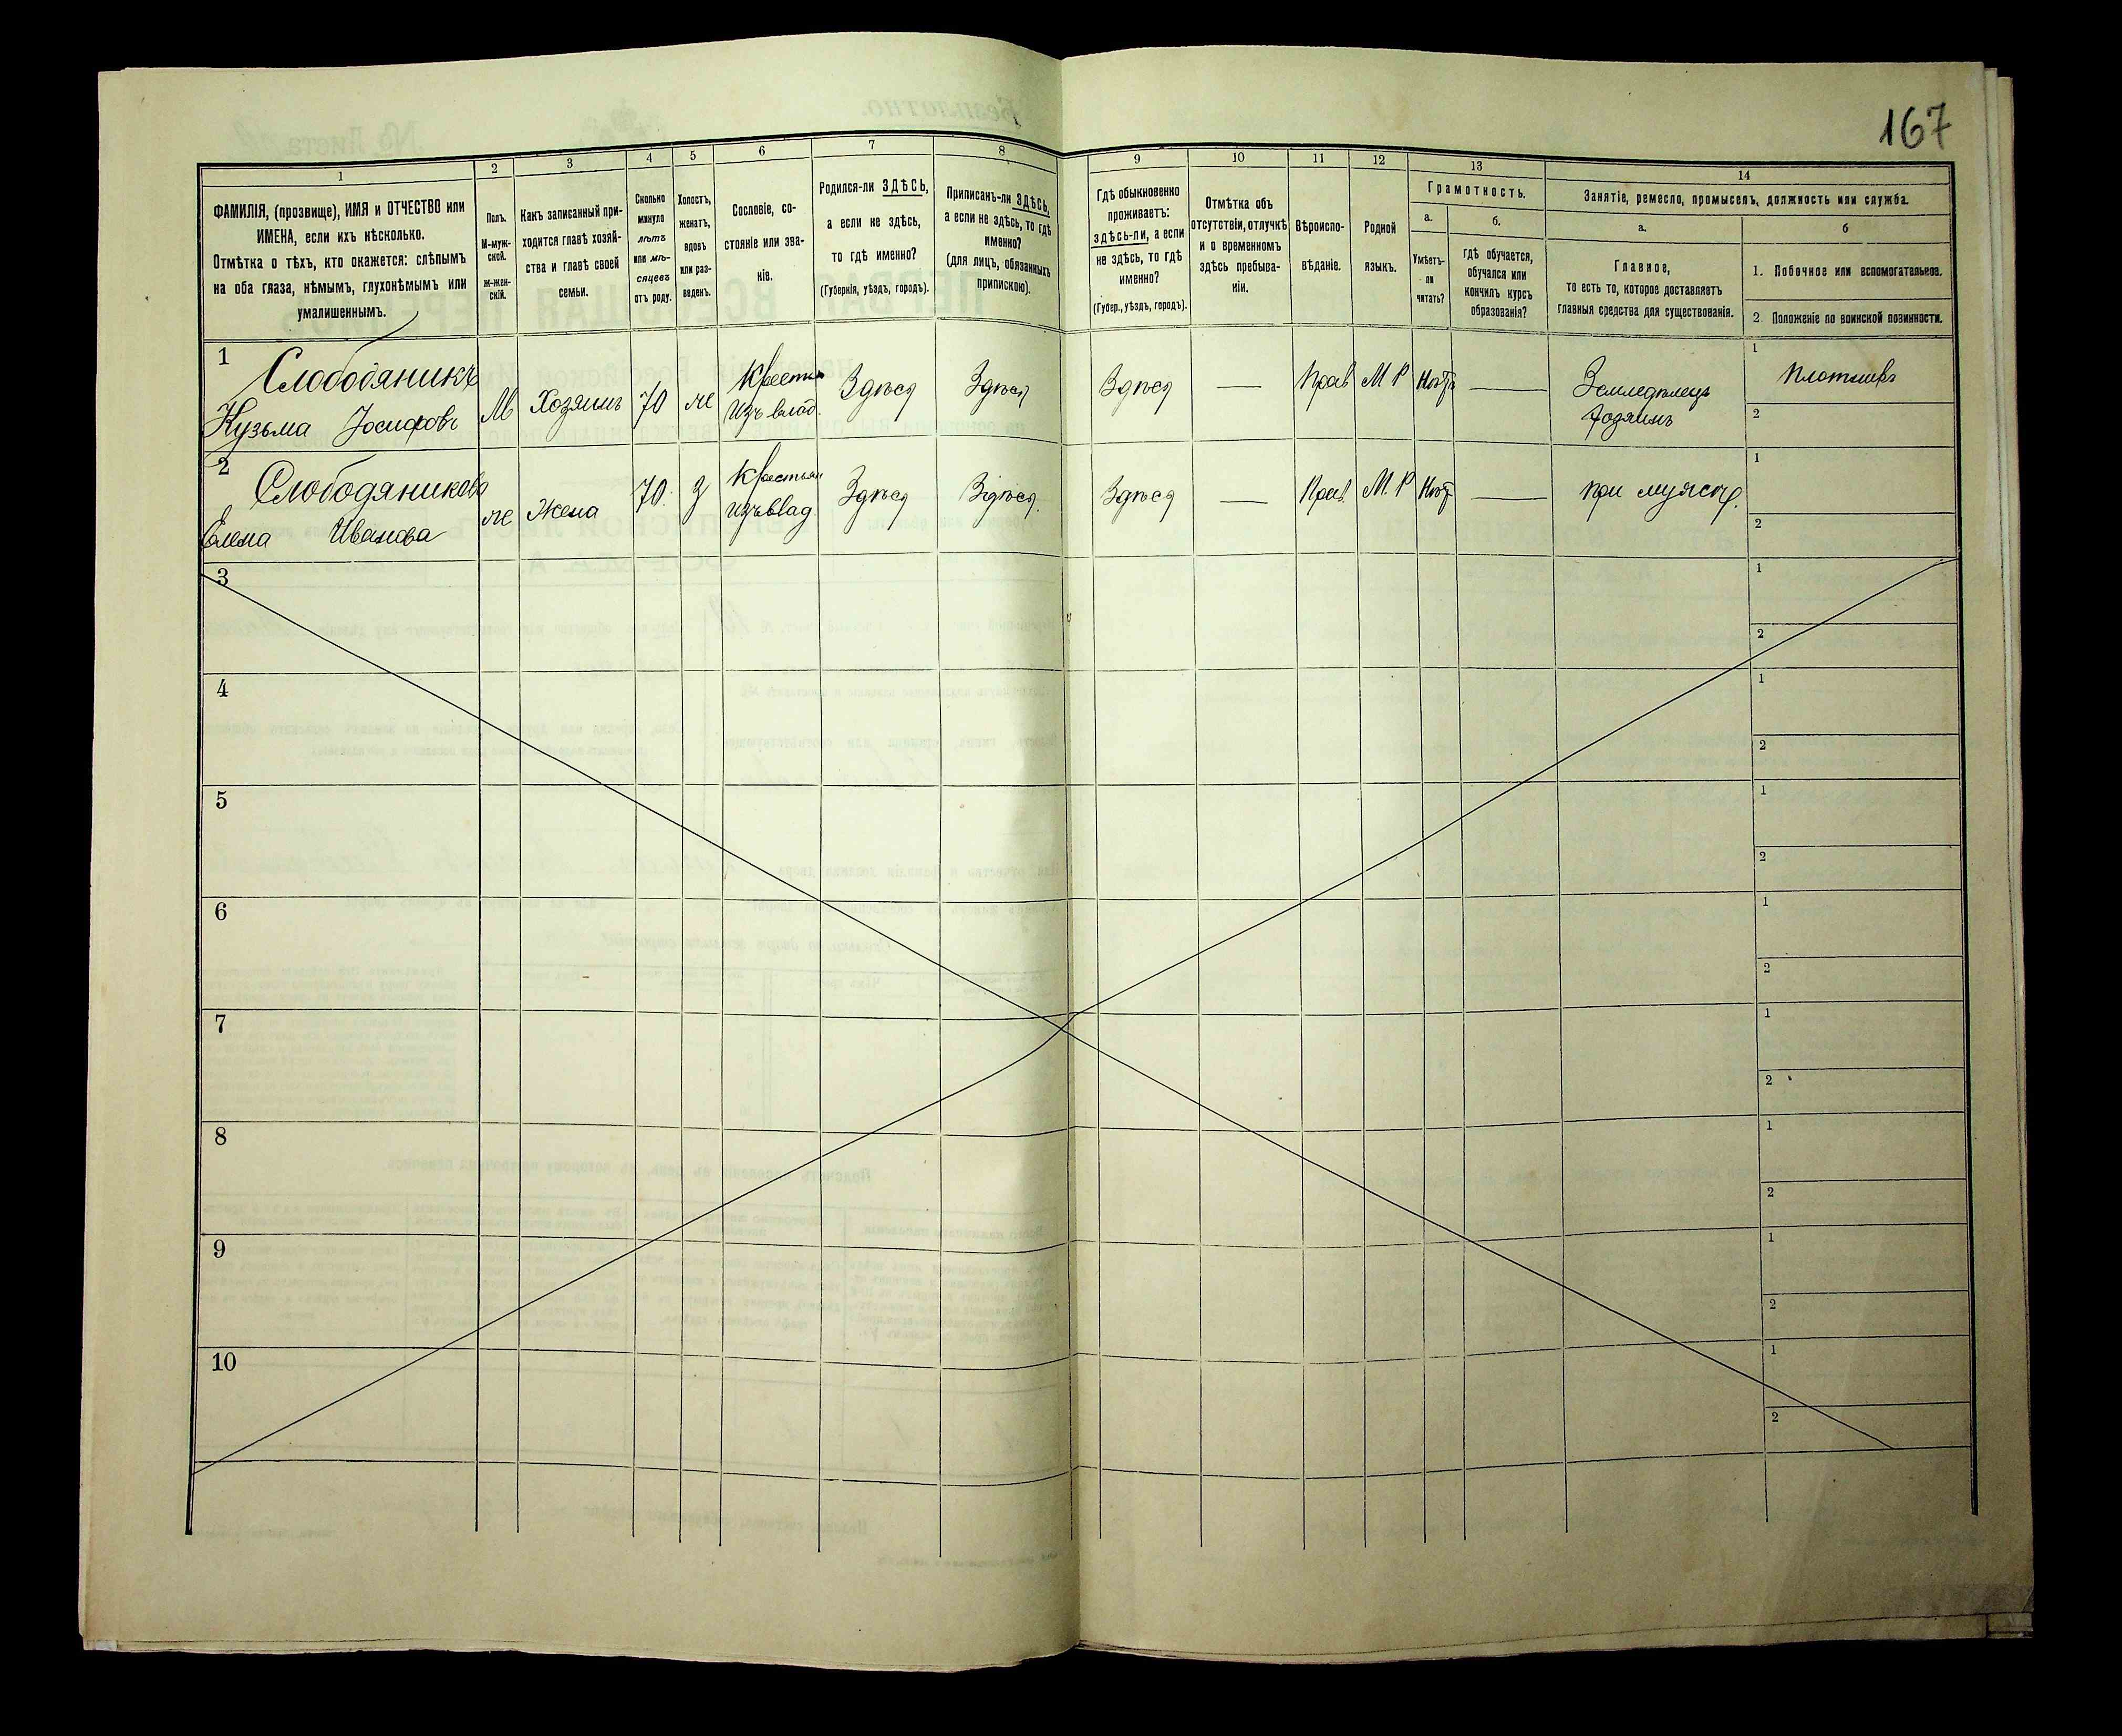 167
1
2
3
4
5
6
7
8
9
10
11
12
13
14
ФАМИЛІЯ, (прозвище), ИМЯ и ОТЧЕСТВО или
ИМЕНА, если ихъ нѣсколько.
Отмѣтка о тѣхъ, кто окажется: слѣпымъ
на оба глаза, нѣмымъ, глухонѣмымъ или
умалишеннымъ.
Полъ.
М-муж-
ской.
ж-жен-
скій.
Какъ записанный при-
ходится главѣ хозяй-
ства и главѣ своей
семьи.
Сколько
минуло
лѣтъ
или мѣ-
сяцевъ
отъ роду.
Холостъ,
женатъ,
вдовъ
или раз-
веденъ.
Сословіе, со-
стояніе или зва-
ніе.
Родился-ли ЗДѢСЬ,
а если не здѣсь,
то гдѣ именно?
(Губернія, уѣздъ, городъ).
Приписанъ-ли ЗДѢСЬ,
а если не здѣсь, то гдѣ
именно?
(для лицъ, обязанныхъ
припискою).
Гдѣ обыкновенно
проживаетъ:
здѣсь-ли, а если
не здѣсь, то гдѣ
именно?
(Губер., уѣздъ, городъ).
Отмѣтка объ
отсутствіи, отлучкѣ
и о временномъ
здѣсь пребыва-
ніи.
Вѣроиспо-
вѣданіе.
Родной
языкъ.
Грамотность.
а.
Умѣетъ-
ли
читать?
б.
Гдѣ обучается,
обучался или
кончилъ курсъ
образованія?
Занятіе, ремесло, промыселъ, должность или служба.
а.
Главное,
то есть то, которое доставляетъ
главныя средства для существованія.
б
1. Побочное или вспомогательное.
2 Положеніе по воинской повинности.
1
Слободяникъ
Кузьма Іосифовъ
М
Хозяинъ
70
ж
Крестьян
Изъ влад.
Здѣсь
Здѣсь
Здѣсь
—
Прав
М Р
Нѣтъ
—
Земледѣлецъ
хозяинъ
1
Плотникъ
2
2
Слободяникова
Елена Иванова
ж
Жена
70.
З
Крестьян
Изъ влад
Здѣсь
Здѣсь.
Здѣсь
—
Прав.
М. Р
Нѣтъ
—
при мужѣ
1
2
3
1
2
4
1
2
5
1
2
6
1
2
7
1
2
8
1
2
9
1
2
10
1
2